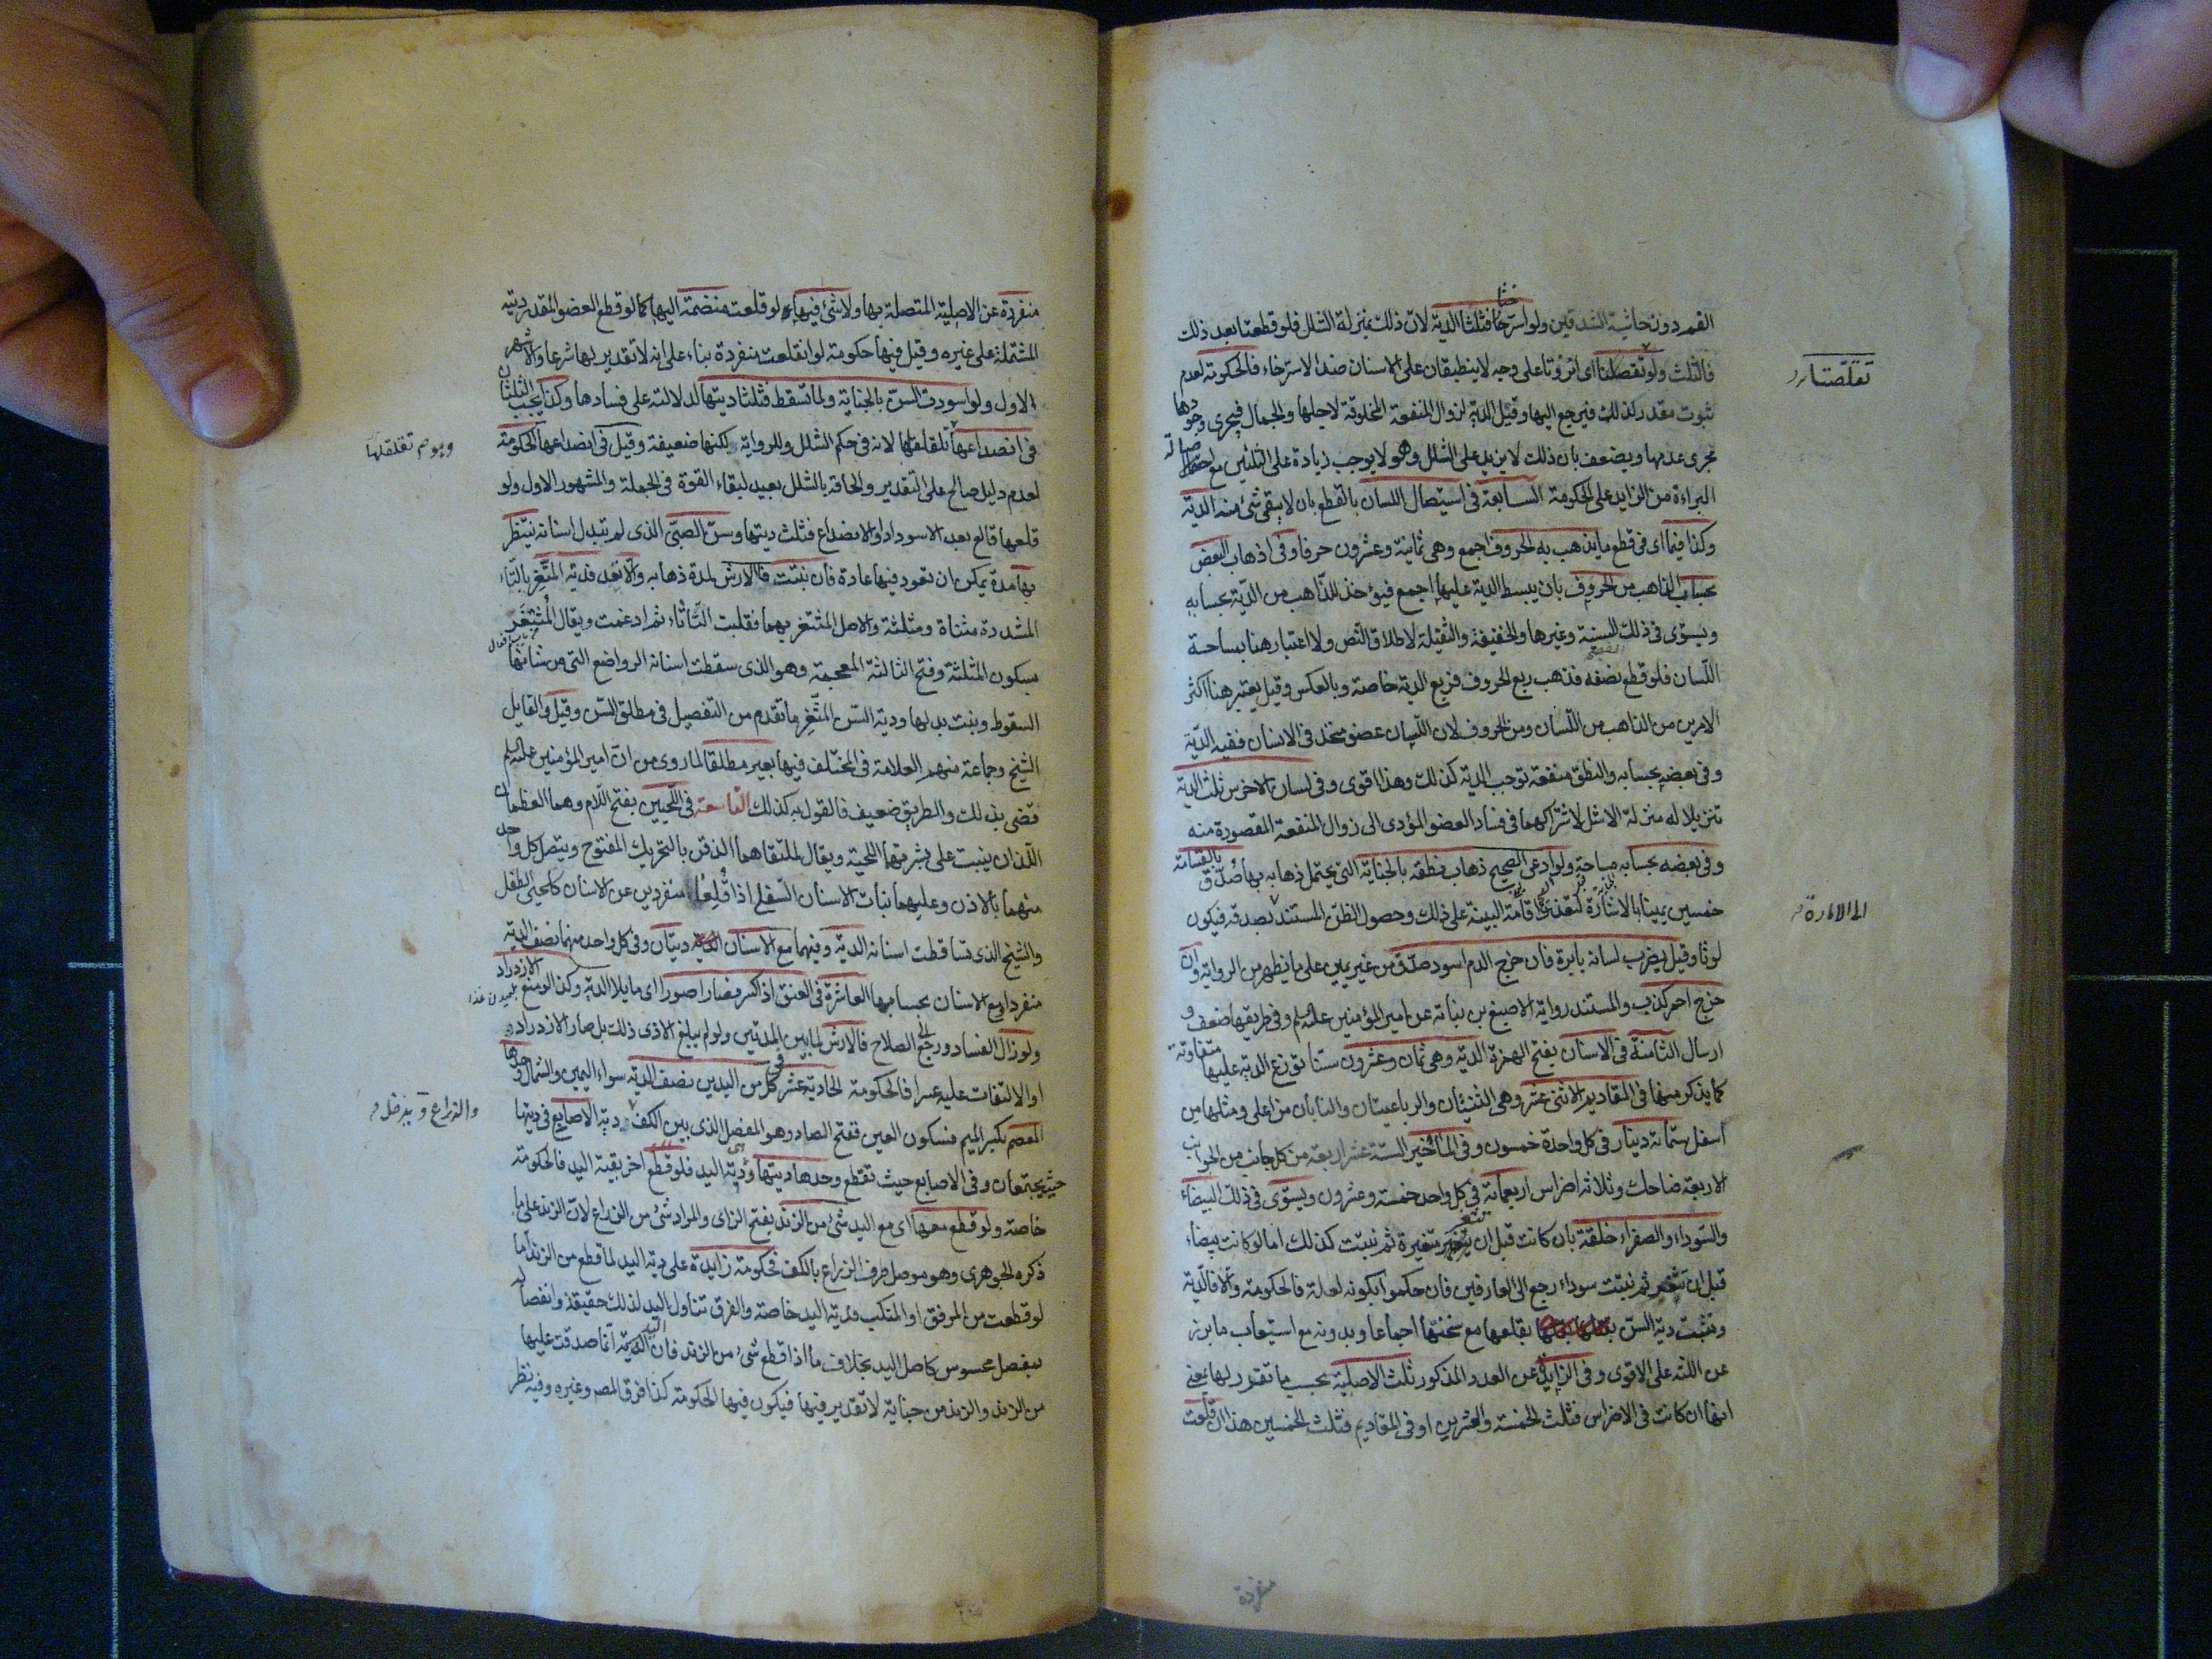 الفم دون حاشية الشدقين ولو استرختا فثلثا الدية لان ذلك بمنزلة الشلل فلو قطعتا بعد ذلك
فالثلث ولو تقلصتا اى انزوتا على وجه لا ينطبقان على الاسنان ضد الاسترخاء فالحكومة لعدم
تقلصتا
ثبوت مقدر لذلك فيرجع اليها وقيل الدية لزوال المنفعة المخلوقة لاجلها والجمال فيجرى وجودها
مجرى عدمها ويضعف بان ذلك لا يزيد على الشلل وهو لا يوجب زيادة على الثلثين مع اصالة
البراءة من الزايد على الحكومة السابعة فى استيصال اللسان بالقطع بان لا يبقى شئ منه الدية
وكذا فيما اى فى قطع ما يذهب به الحروف اجمع وهى ثمانية وعشرون حرفا وفى اذهاب البعض
بحساب الذاهب من الحروف بان يبسط الدية عليها اجمع فيؤخذ للذاهب من الدية بحسابه
ويستوى فى ذلك اللسنية وغيرها والخفيفة والثقيلة لاطلاق النص ولا اعتبار هنا بمساحة
اللسان فلو قطع نصفه فذهب ربع الحروف فربع الدية خاصة وبالعكس وقيل يعتبر هنا اكثر
الامرين من الذاهب من اللسان ومن الحروف لان اللسان عضو متحد فى الانسان ففيه الدية
وفى بعضه بحسابه والنطق منفعة توجب الدية كذلك وهذا اقوى وفى لسان الاخرس ثلث الدية
تنزيلا له منزلة الاشل لاشتراكهما فى فساد العضو المؤدى الى زوال المنفعة المقصودة منه
وفى بعضه بحسابه مساحة ولو ادعى الصحيح ذهاب نطقه بالجناية التى يحتمل ذهابه بها صدق بالقسامة
خمسين يمينا بالاشارة لتعذر اقامة البينة على ذلك وحصول الظن المستند بصدقه فيكون
الى الامارة
لوثا وقيل يضرب لسانه بابرة فان خرج الدم اسود صدق من غير يمين على ما يظهر من الرواية وان
خرج احمر كذب والمستند رواية الاصبغ بن نباتة عن امير المؤمنين عليه السلم وفى طريقها ضعف و
ارسال الثامنة فى الاسنان بفتح الهمزة الدية وهى ثمان وعشرون سنا توزع الدية عليها متفاوتة
كما يذكر منها فى المقاديم الاثنى عشر وهى الثنيتان والرباعيتان والنابان من اعلى ومثلها من
اسفل ستمائة دينار فى كل واحدة خمسون وفى المآخير الستة عشر اربعة من كل جانب من الجوانب
الاربعة ضاحك وثلاثة اضراس اربعمائة فى كل واحد خمسة وعشرون ويستوى فى ذلك البيضاء
والسوداء والصفراء خلقة بان كانت قبل ان يثغر متغيرة ثم نبتت كذلك اما لو كانت بيضاء
قبل ان يثغر ثم نبتت سوداء رجع الى العارفين فان حكموا بكونه لعلة فالحكومة والا فالدية
وتثبت دية السن بقلعها مع سنخها اجماعا وبدونه مع استيعاب ما برز
عن اللثة على الاقوى وفى الزايدة عن العدد المذكور ثلث الاصلية بحسب ما تقرر لها بمعنى
انها ان كانت فى الاضراس فثلث الخمسة والعشرين او فى المقاديم فثلث الخمسين هذا ان قلعت
منفردة
منفردة عن الاصلية المتصلة بها ولا شئ فيها لو قلعت منضمة اليها كما لو قطع العضو المقدر ديته
المشتملة على غيره وقيل فيها حكومة لو انقلعت منفردة بناء على انه لا تقدير لها شرعا والاشهر
الاول ولو اسودت السن بالجناية ولما تسقط فثلثا ديتها لدلالته على فسادها وكذا يجب الثلثان
فى انصداعها تلقلقها لانه فى حكم الشلل وللرواية لكنها ضعيفة وقيل فى انصداعها الحكومة
وهو تقلقلها
لعدم دليل صالح على التقدير والحاقه بالشلل بعيد لبقاء القوة فى الجملة والمشهور الاول ولو
قلعها قالع بعد الاسوداد او الانصداع فثلث ديتها وسن الصبى الذى لم تبدل اسنانه ينتظر
بها مدة يمكن ان تعود فيها عادة فان نبتت فالارش لمدة ذهابه والا تعد فدية المثغر بالتاء
المشددة مثناة ومثلثة والاصل المثتغر بهما فقلبت الثاء تاء ثم ادغمت ويقال المثغر
بسكون المثلثة وفتح الثالثة المعجمة وهو الذى سقطت اسنانه الرواضع التى من شانها
السقوط ونبت بدلها ودية السن المثغر ما تقدم من التفصيل فى مطلق السن وقيل والقايل
الشيخ وجماعة منهم العلامة فى المختلف فيها بعير مطلقا لما روى من ان امير المؤمنين عليه السلم
قضى بذلك والطريق ضعيف فالقول به كذلك التاسعة فى اللحيين بفتح اللام وهما العظمان
اللذان ينبت على بشرتهما اللحية ويقال لملتقاهما الذقن بالتحريك المفتوح ويتصل كل واحد
منهما بالاذن وعليهما نبات الاسنان السفلى اذا قلعا منفردين عن الاسنان كلحيى الطفل
والشيخ الذى تساقطت اسنانه الدية وفيهما مع الاسنان ديتان وفى كل واحد منهما نصف الدية
منفردا ومع الاسنان بحسابها العاشرة فى العنق اذا كسر فصار اصورا اى مايلا الدية وكذا لو منع الازدراد
ولو زال الفساد ورجع الى الصلاح فالارش لما بين المدتين ولو لم يبلغ الاذى ذلك بل صار الازدراد
او الالتفات عليه عسرا فالحكومة الحادية عشر فى كل من اليدين نصف الدية سواء اليمين والشمال وحدها
المعصم بكسر الميم فسكون العين ففتح الصاد وهو المفصل الذى بين الكف دية الاصابع فى ديتها
والذراع ويدخل
حيث يجتمعان وفى الاصابع حيث تقطع وحدها ديتها وهى دية اليد فلو قطع اخر بقية اليد فالحكومة
خاصة ولو قطع معها اى مع اليد شئ من الزند بفتح الزاى والمراد شئ من الذراع لان الزند على ما
ذكره الجوهرى وهو موصل طرف الذراع بالكف فحكومة زايدة على دية اليد لما قطع من الزند اما
لو قطعت من المرفق او المنكب فدية اليد خاصة والفرق تناول اليد لذلك حقيقة وانفصال
بمفصل محسوس كاصل اليد بخلاف ما اذا قطع شئ من الزند فان الدية انما صدقت عليها
من الزند والزند من جناية لا تقدير فيها فيكون فيها الحكومة كذا فرق المص وغيره وفيه نظر